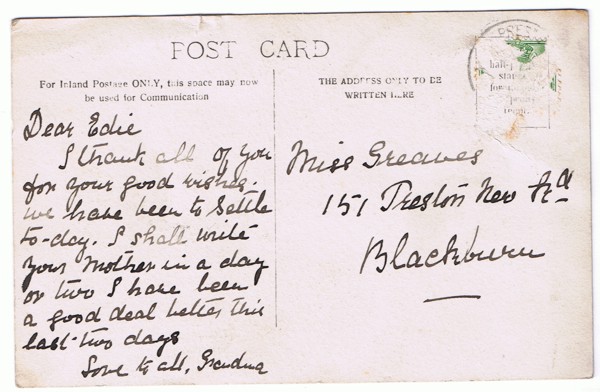 POST CARD
For Inland Postage ONLY, this space may now
be used for Communication
THE ADDRESS ONLY TO BE
WRITTEN HERE
PRES
half-
sta
for
Dear Edie
I thank all of you
for your good wishes.
We have been to Settle
to-day. I shall write
your Mother in a day
or two I have been
a good deal better this
last two days
Love to all, Grandma
Miss Greaves
151 Preston New Rd
Blackburn